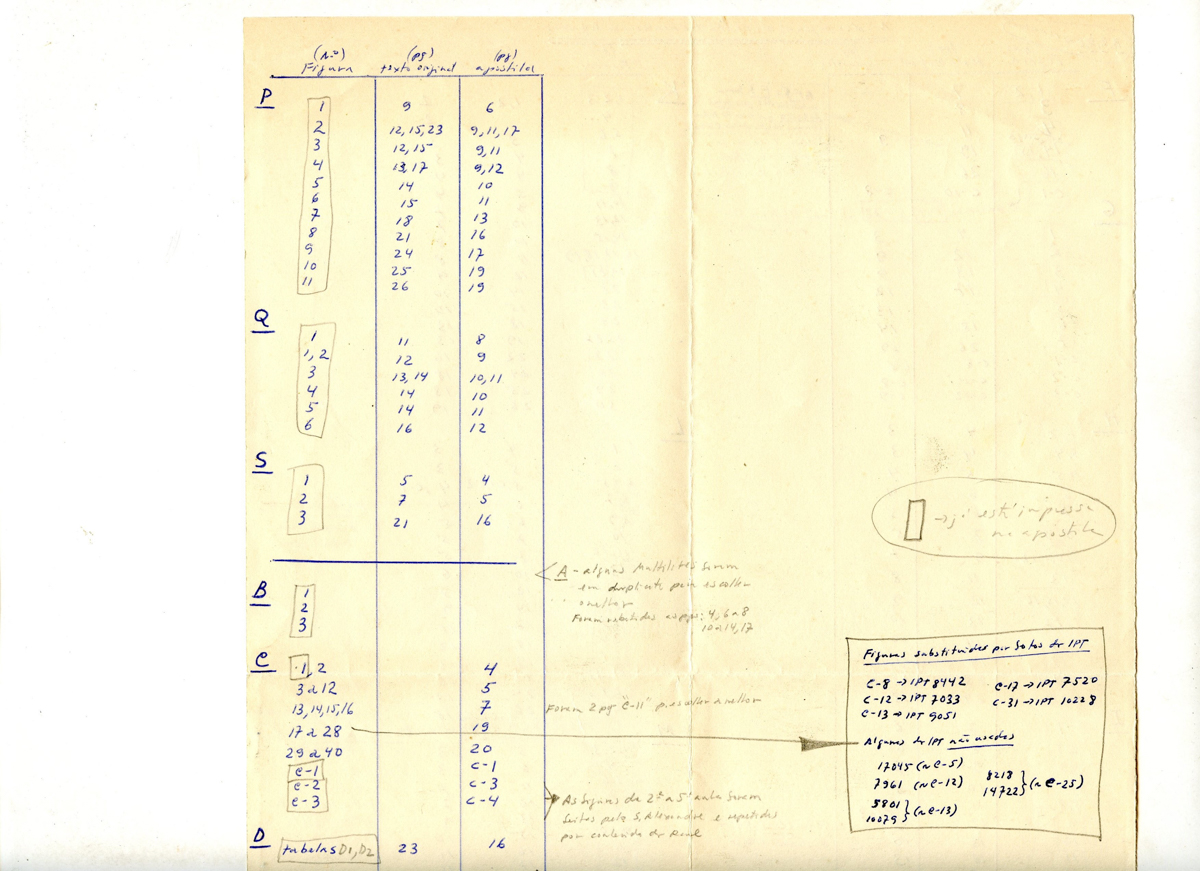 (nº) (pg) (pg)
Figura texto original apostila
P
1 9 6
2 12,15,23 9,11,17
3 12,15 9,11
4 13,17 9,12
5 14 10
6 15 11
7 18 13
8 21 16
9 24 17
10 25 19
11 26 19
Q
1 11 8
1,2 12 9
3 13,14 10,11
4 14 10
5 14 11
6 16 12
S
1 5 4
2 7 5
3 21 16
→ já está impressa
na apostila
A - alguns Multilites
em duplicata para escolher
o melhor
Foram pgs: 4, 6 a 8
10 a 14, 17
B
1
2
3
C
1, 2 4
3 a 12 5
13,14,15,16 7
Foram 2 pg "C-11" p/ escolher a melhor
17 a 28 19
29 a 40 20
C-1 C-1
C-2 C-3
C-3 C-4
As figuras da 2ª a 5ª aula
feitas pelo S. Alexandre e repetidas
por
D
tabelas D1, D2 23 16
Figuras substituidas por fotos do IPT
C-8 → IPT 8442 C-17 → IPT 7520
C-12 → IPT 7033 C-31 → IPT 10228
C-13 → IPT 9051
Algumas do IPT não usadas
17045 (~C-5)
7961 (~C-12)
8218
14722 } (~C-25)
5801
10079 } (~C-13)